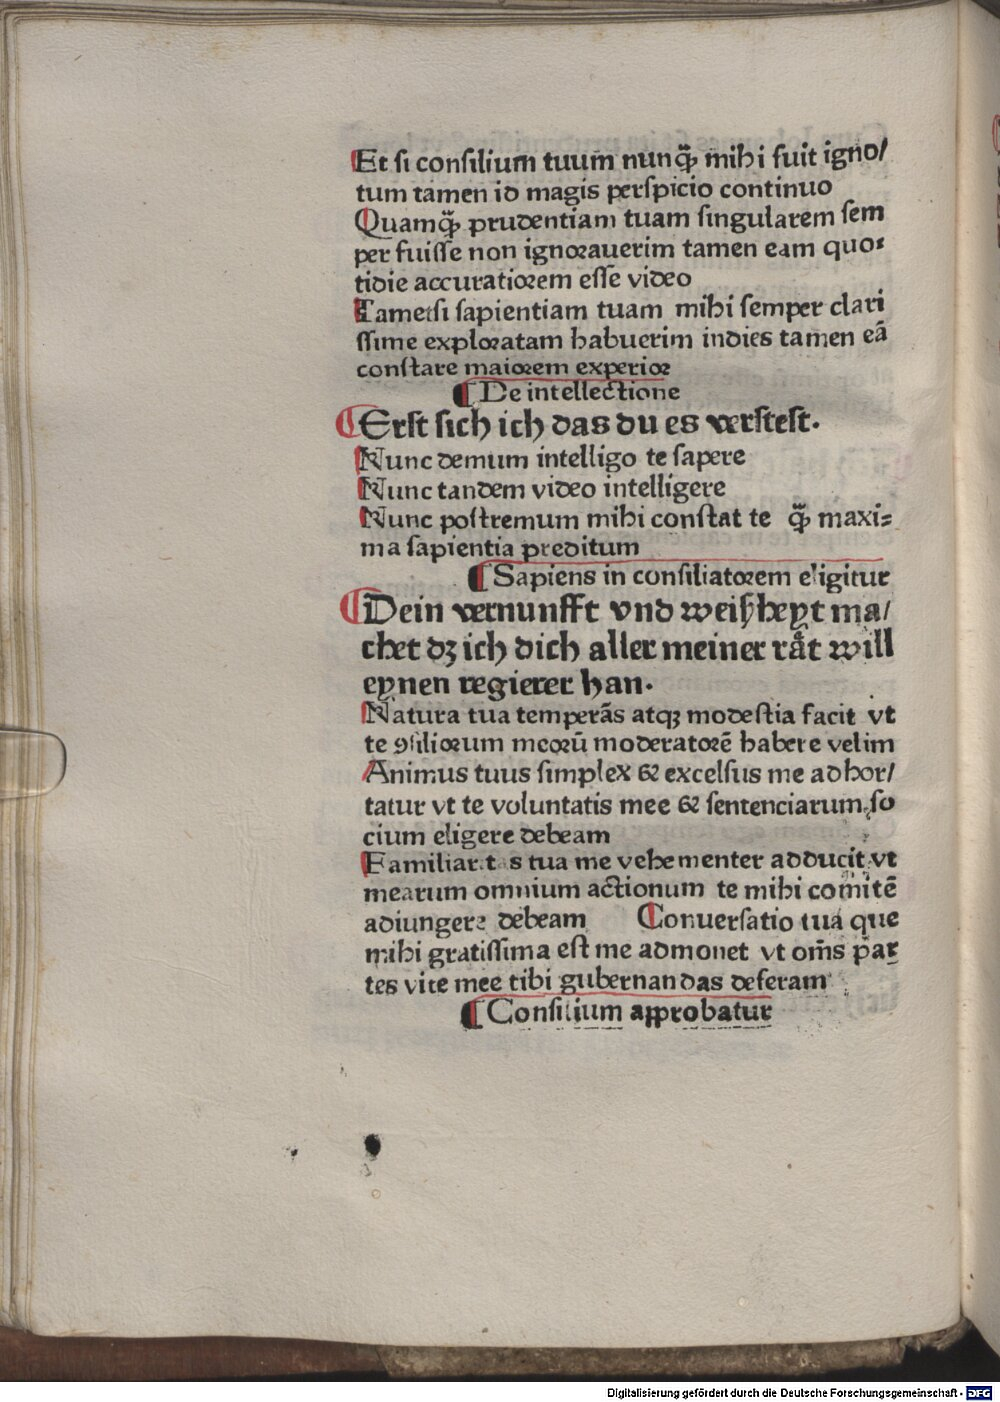 Et si consilium tuum nunꝙ̃ mihi fuit igno/
tum tamen id magis perspicio continuo
Quamꝙ̃ prudentiam tuam singularem sem
per fuisse non ignorauerim tamen eam quo⸗
tidie accuratiorem esse video
Tametsi sapientiam tuam mihi semper clari
ssime exploratam habuerim indies tamen eã
constare maiorem experior
¶ De intellectione
Erst sich ich das du es verstest.
Nunc demum intelligo te sapere
Nunc tandem video intelligere
Nunc postremum mihi constat te ꝙ̃ maxi⸗
ma sapientia preditum
¶ Sapiens in consiliatorem eligitur
Dein vernunfft vnd weiſzheyt ma/
chet dz ich dich aller meiner rãt will
eynen regierer han.
Natura tua temperãs atqꝫ modestia facit vt
te ꝯsiliorum meorũ moderatorẽ habere velim
Animus tuus simplex & excelsus me adhor/
tatur vt te voluntatis mee & sentenciarum so
cium eligere debeam
Familiaritas tua me vehementer adducit vt
mearum omnium actionum te mihi comitẽ
adiungere debeam Conuersatio tua que
mihi gratissima est me admonet vt om̃s par
tes vite mee tibi gubernandas deferam
¶ Consilium approbatur
Digitalisierung gefördert durch die Deutsche Forschungsgemeinschaft - DFG